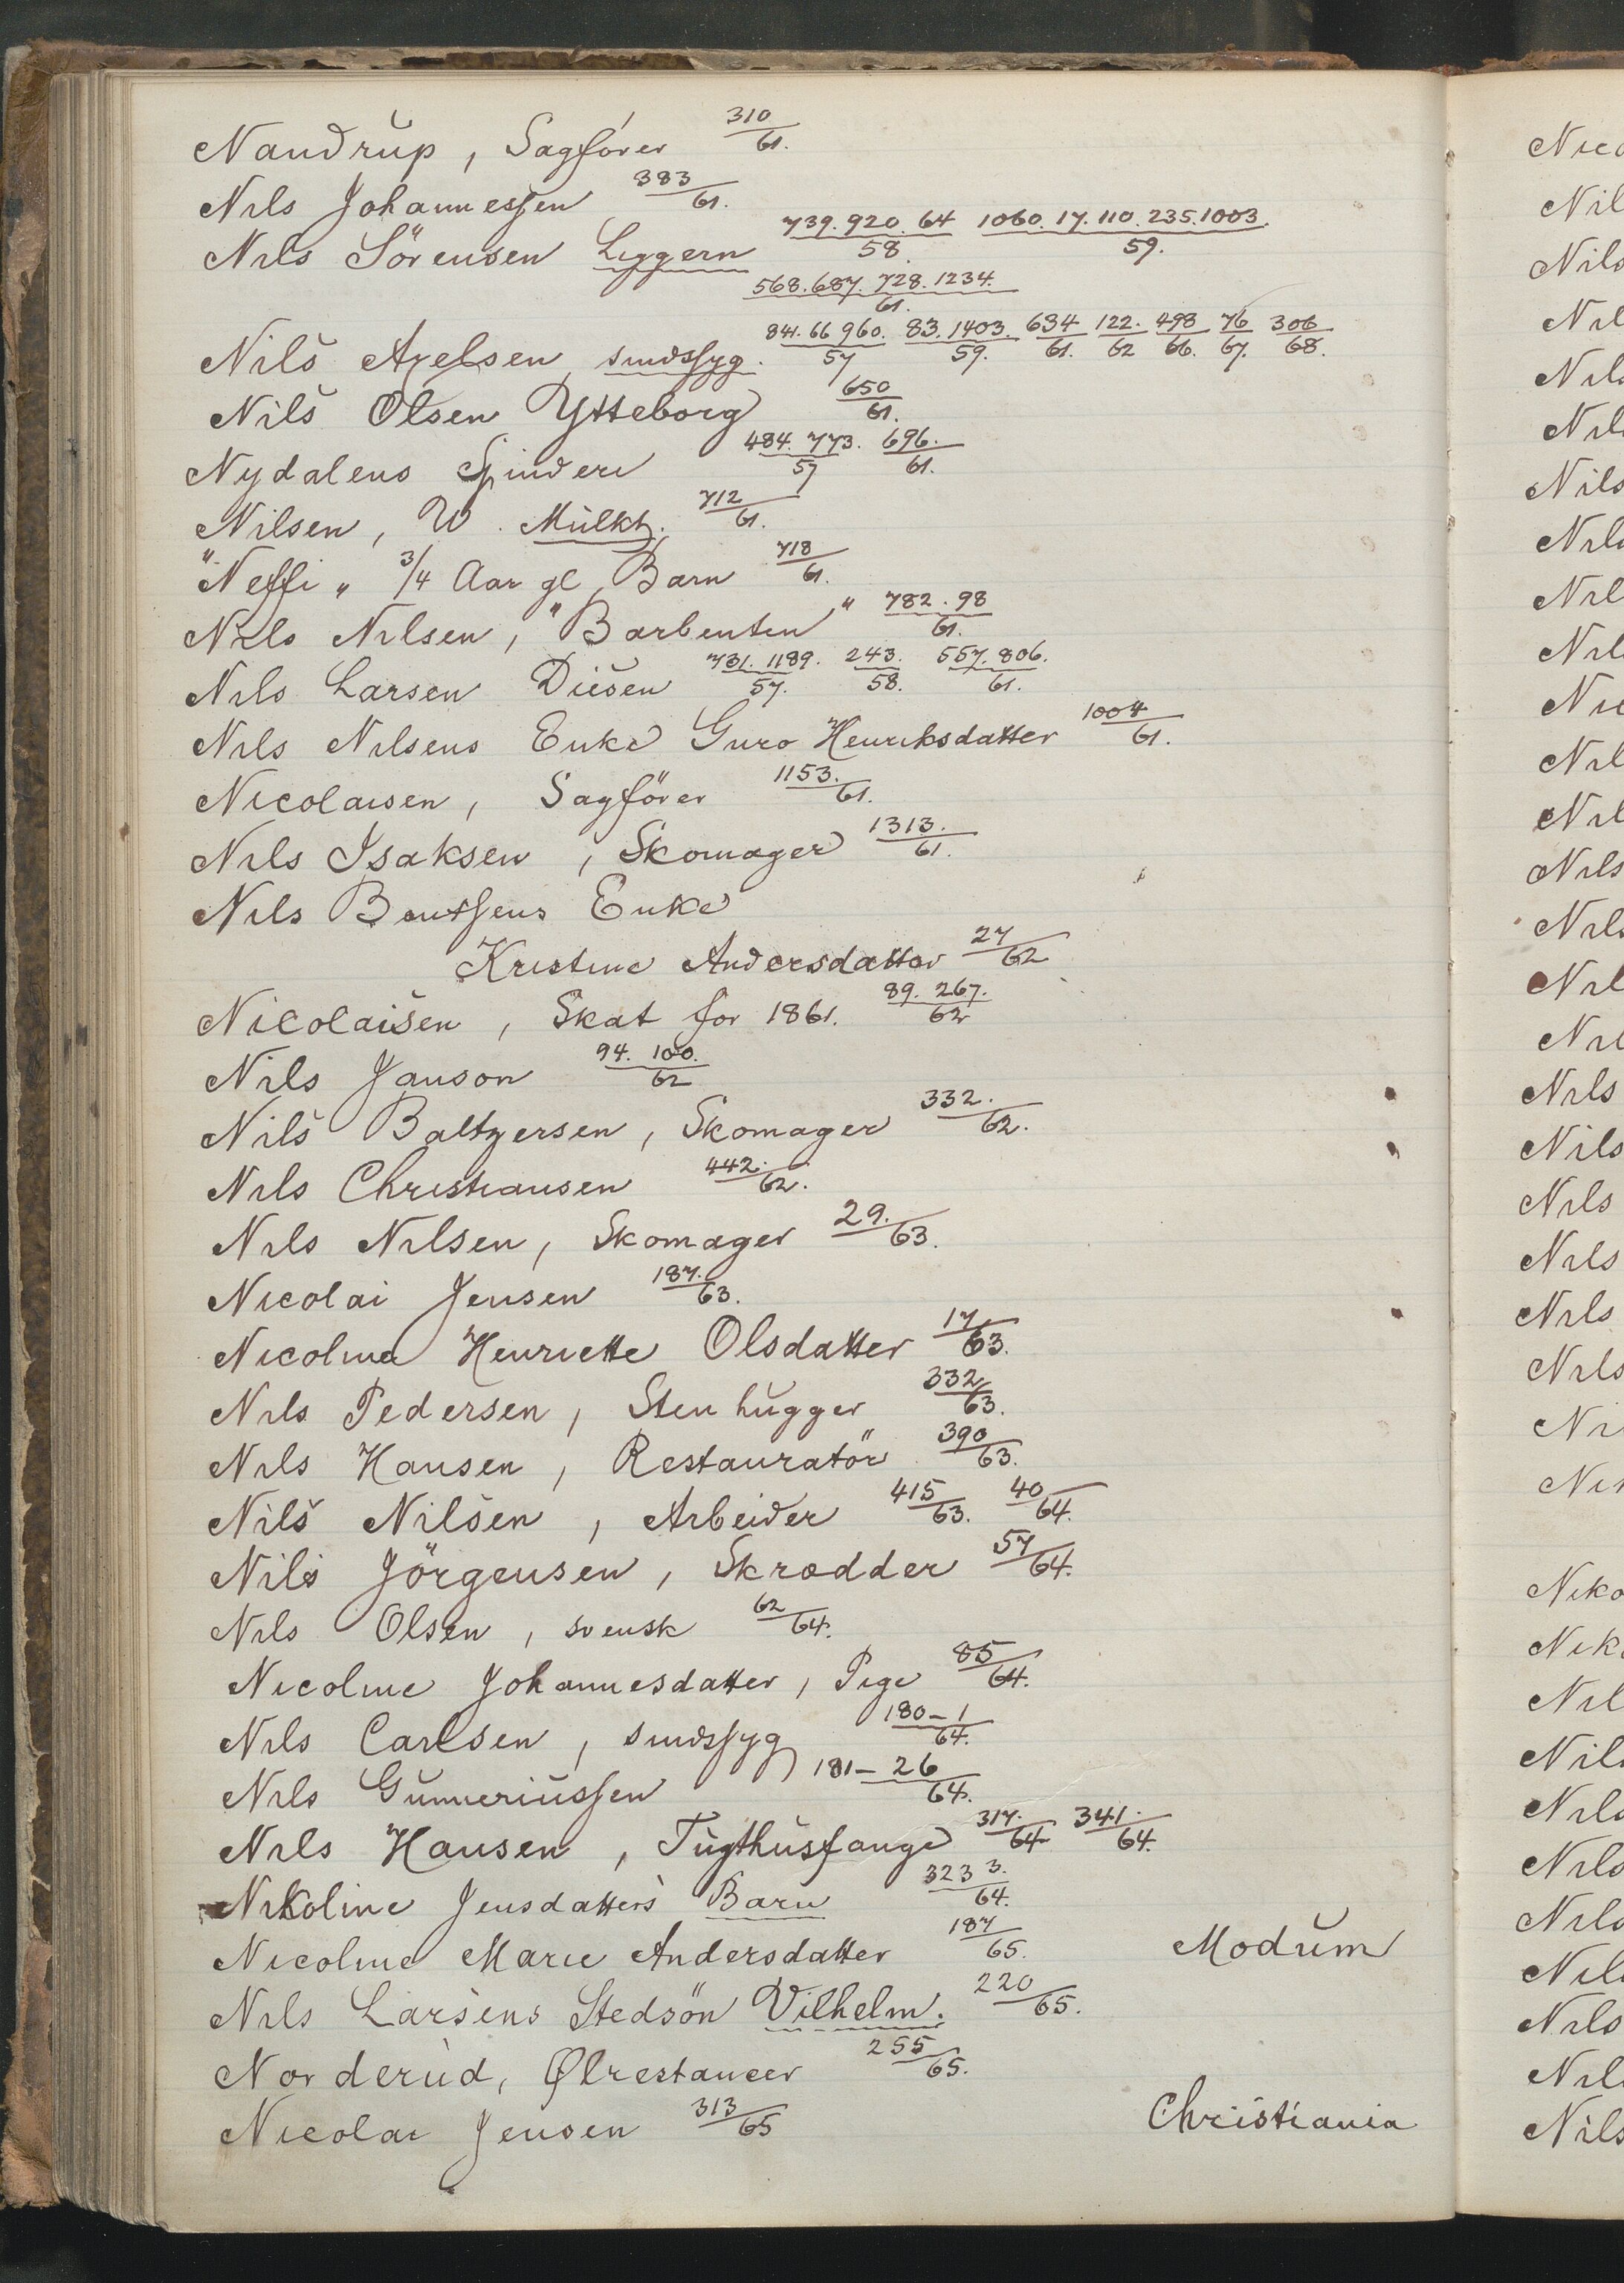 Nandrup, Sagfører 310/61.
Nils Johannessen 383/61.
Nils Sörensen Liggern 739.920.64/58. 1060.17.110.235.1003./59.
568.687.728.1234./61.
Nils Axelsen, sindssyg. 841.66 960./57 83.1403./59. 634/61. 122./62 498/66. 76/67. 306/68.
Nils Olsen Ytteborg 650/61.
Nydalens Spinderi 484.773./57 696./61.
Nilsen, W. Mülkt. 712/61.
"Neffi" 3/4 Aar gl. Barn 718/61.
Nils Nilsen, "Barbenten" 782.98/61.
Nils Larsen Diesen 731.1189./57. 243./58. 557.806./61.
Nils Nilsens Enke Guro Henriksdatter 1004/61.
Nicolaisen, Sagförer 1153./61.
Nils Isaksen, Skomager 1313./61.
Nils Bentsens Enke
Kristine Andersdatter 27/62
Nicolaisen, Skat for 1861. 89.267./62
Nils Janson 94.100./62
Nils Baltzersen, Skomager 332./62.
Nils Christiansen 442./62.
Nils Nilsen, Skomager 29./63.
Nicolai Jensen 187./63.
Nicolina Henriette Olsdatter 17/63.
Nils Pedersen, Stenhugger 332/63.
Nils Hansen, Restauratör 390/63.
Nils Nilsen, Arbeider 415/63. 40/64.
Nils Jörgensen, Skrædder 57/64.
Nils Olsen, svensk 62/64.
Nicoline Johannesdatter, Pige 85/64.
Nils Carlsen, sindssyg 180-1/64.
Nils Gunneriussen 181-26/64.
Nils Hansen, Tugthusfange 317./64 341./64.
Nikoline Jensdatters Barn 323 3./64.
Nicoline Marie Andersdatter 187/65. Modum
Nils Larsens Stedsön Vilhelm. 220/65.
Norderud, Ølrestancer 255/65.
Nicolai Jensen 313/65 Christiania
Nils
Nils
Nils
Nils
Nils
Nils
Nils
Nils
Nils
Nils